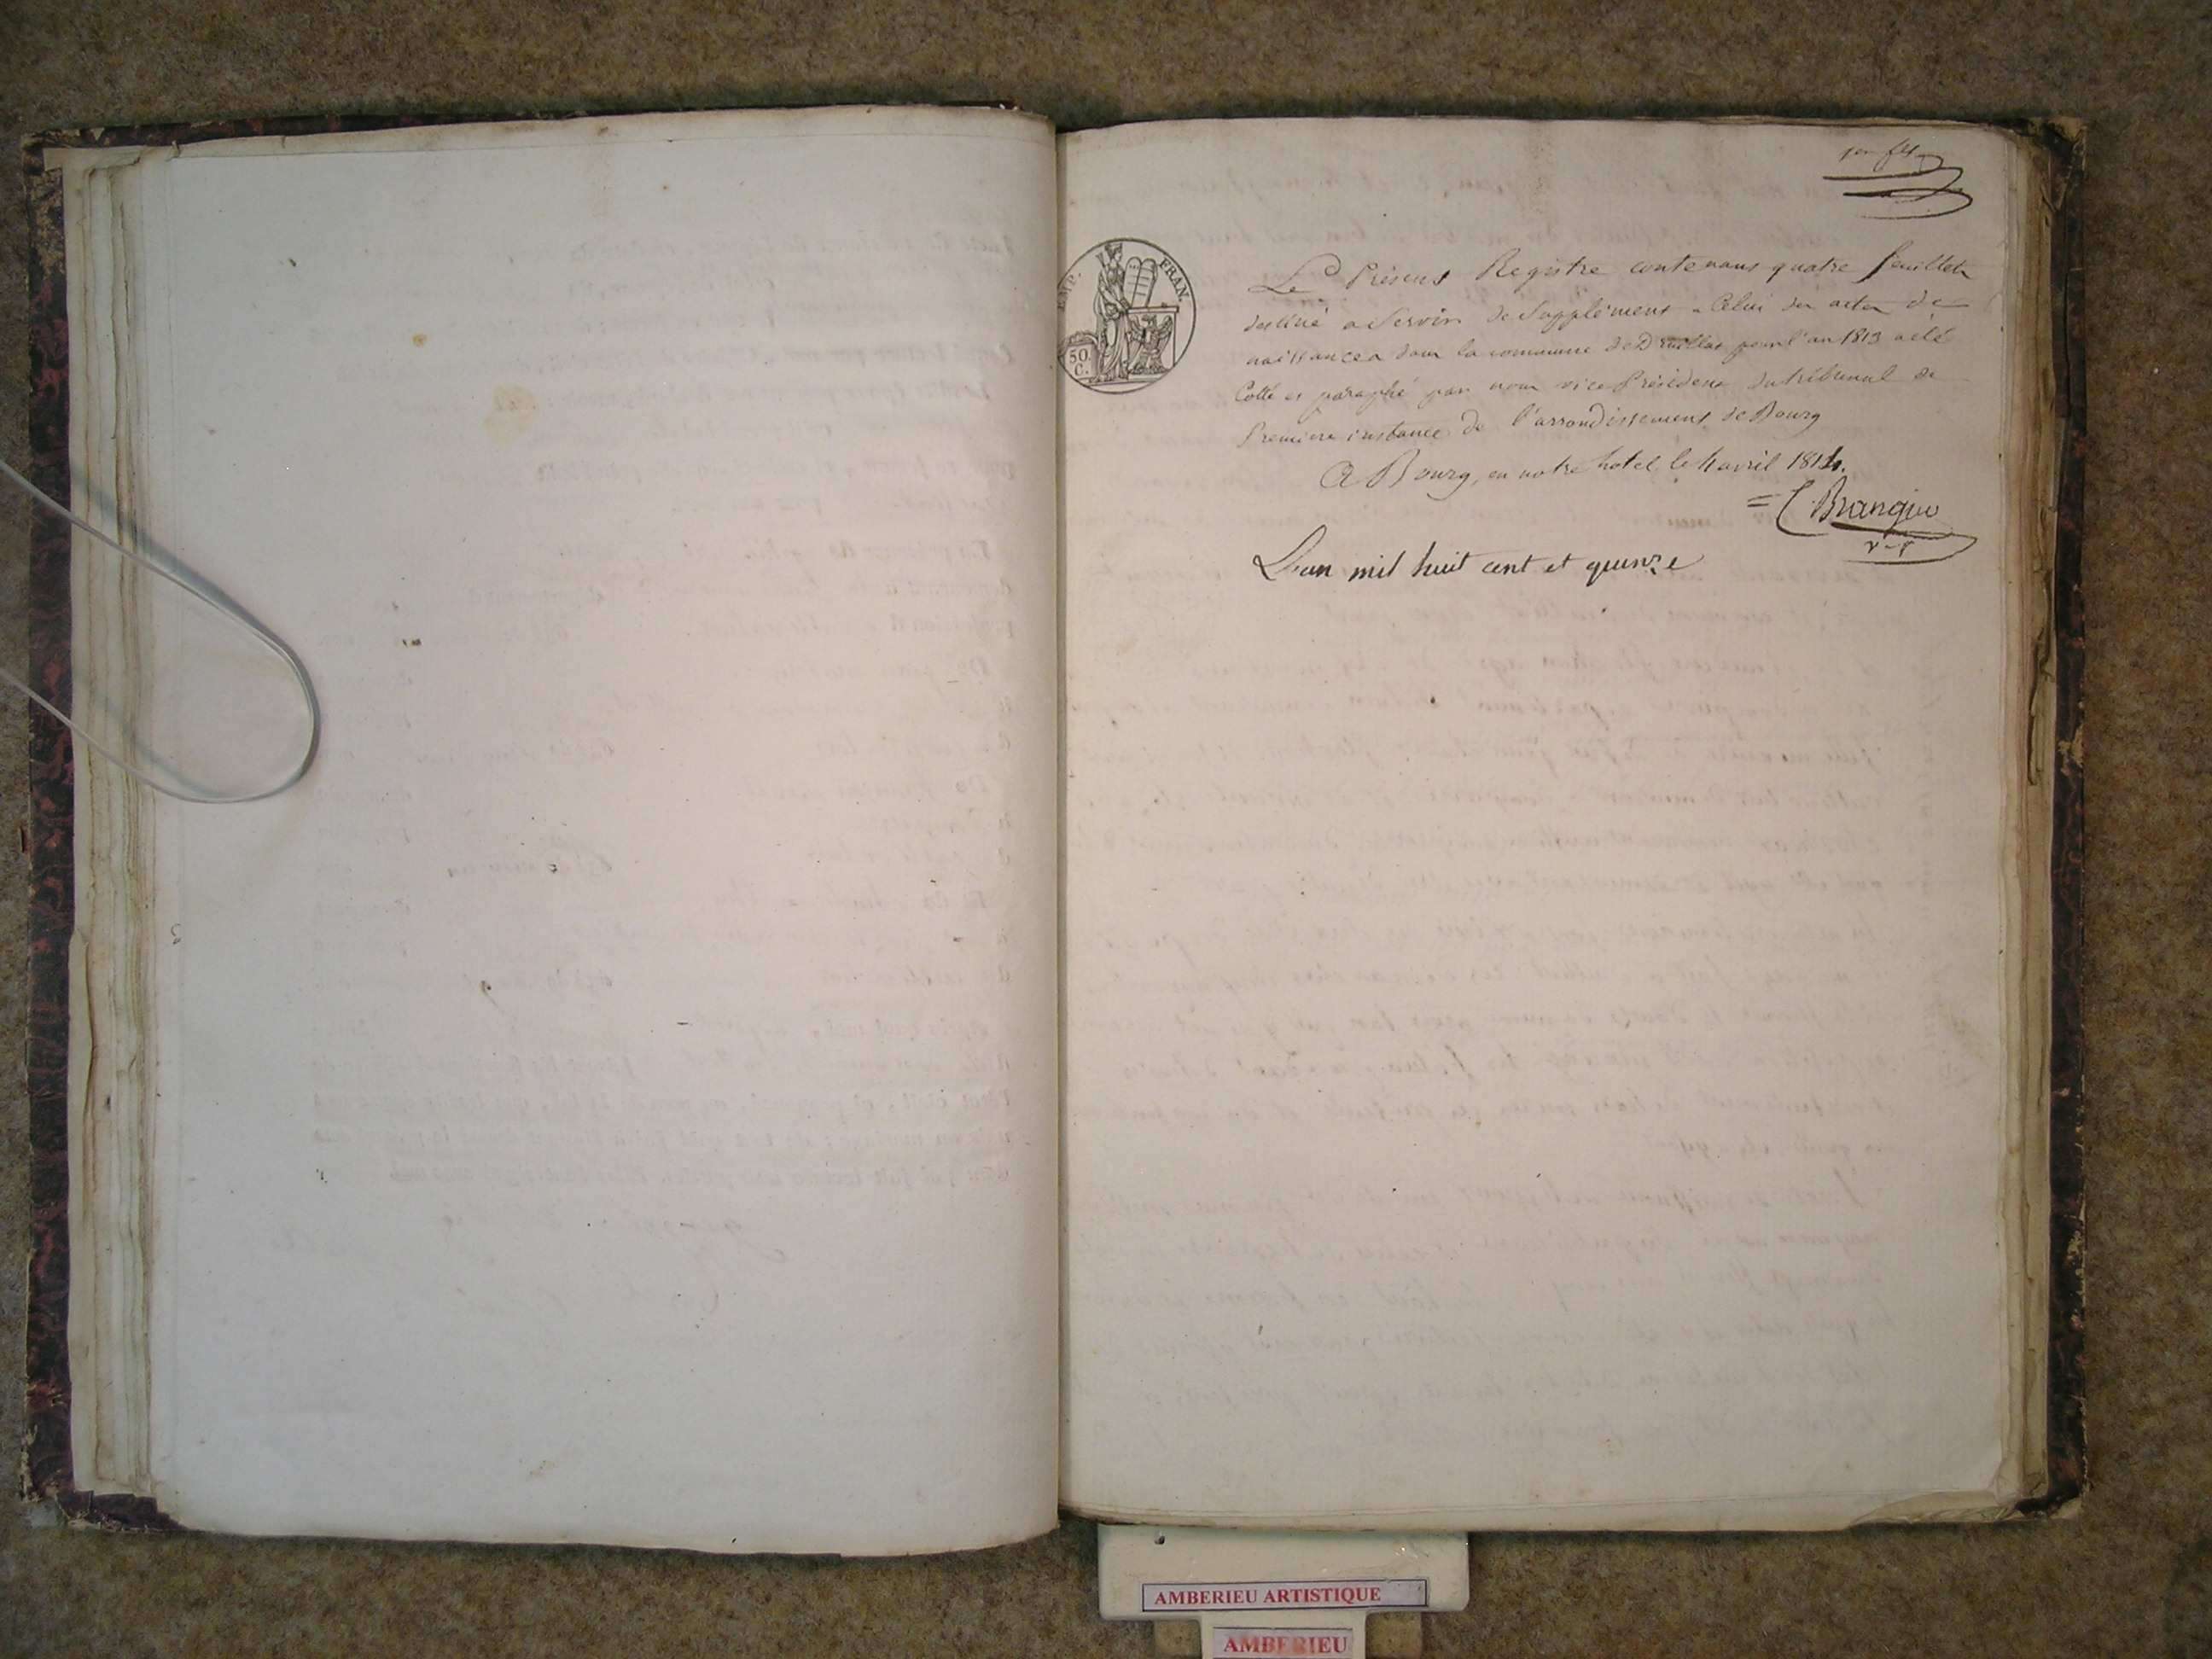 1er flt
EMP. FRAN.
50.
C.
Le Présent Registre contenans quatre feuillets
destiné a Servir de Supplément a Celui des actes de
naissances dans la commune de Druillat pour l'an 1813 a été
Cotté et paraphé par nous vice Président du tribunal de
Premiere instance de l'arrondissement de Bourg
A Bourg, en notre hotel, le 4 avril 1814.
= C Brangier
v-p
L'an mil huit cent et quinze
AMBERIEU ARTISTIQUE
AMBERIEU